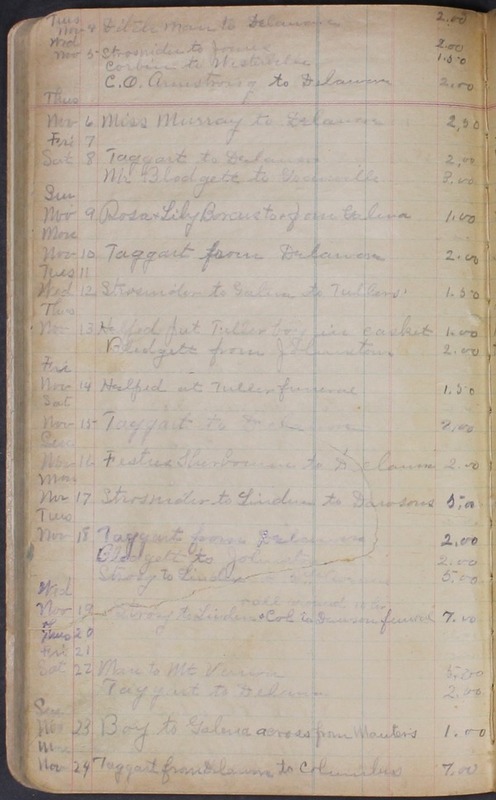 Tues
Nov 4 man to Delaware 2.00
Wed
Nov 5 Strosnider to 2.00
Corbin to Westerville 1.50
C.O. Armstrong to Delaware 2.00
Thus
Nov 6 Miss Murray to Delaware 2.00
Fri 7
Sat 8 Taggart to Delaware 2.00
Mr Blodgett to 3.00
Sun
Nov 9 Rosa & Lily to & from Galena 1.00
Mon
Nov 10 Taggart from Delaware 2.00
Tues 11
Wed 12 Strosnider to Galena to Tullers 1.50
Thus
Nov 13 Helped put Tuller boy in casket 1.00
Blodgett from Johnstown 2.00
Fri
Nov 14 Helped at Tuller funeral 1.50
Sat
Nov 15 Taggart to Delaware 2.00
Sun
Nov 16 Festus to Delaware 2.00
Mon
Nov 17 Strosnider to Linden to Dawsons 5.00
Tues
Nov 18 Taggart from Delaware 2.00
Blodgett to Johnstown 2.00
to Linden 5.00
Wed
Nov 19 to Linden & Col to Dawson funeral 7.00
Thus 20
Fri 21
Sat 22 Man to Mt Vernon 5.00
Taggart to Delaware 2.00
Sun
Nov 23 Boy to Galena across from Mauters 1.00
Mon
Nov 24 Taggart from Delaware to Columbus 7.00